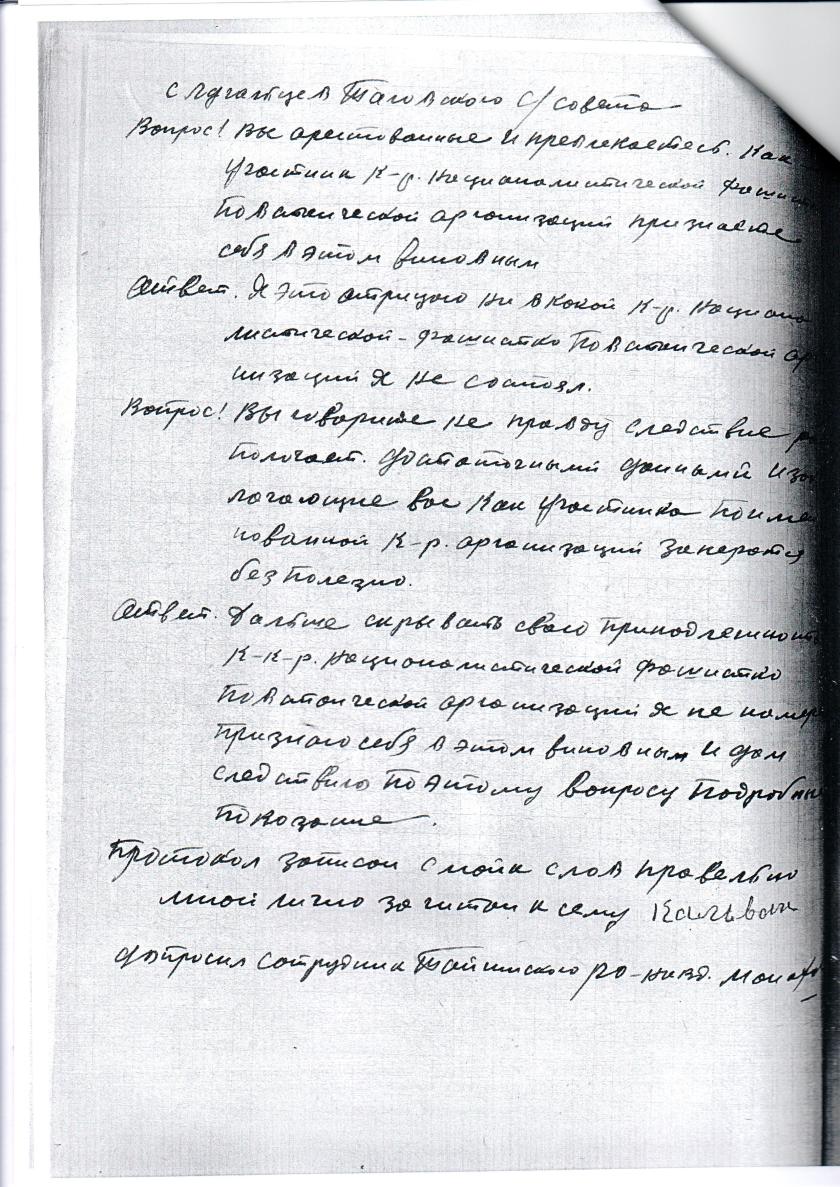 с Таговского с/совета
Вопрос! Вы арестованные и превлекаетесь. Как
участник К-р. Националистической Фаши
Повстанческой организаций признаете
себя в этом виновным
Ответ. Я это отрицаю ни в какой К-р. Национа
листической-фашистко Повстанческой ор
низаций я не состоял.
Вопрос! Вы говорите не правду следствие р
пологает. достаточными данными изо
логающие вас Как участника Поиме
нованной К-р. организаций Заператся
бесполезно.
Ответ. Дальше скрывать свою принодлежност
К-К-р. Националистической Фашистко
Повстанческой организаций я не намер
признаю себя в этом виновным и дам
следствию По этому вопросу Подробны
показание.
Протокол записан с моих слов правельно
мной лично зачитан к сему Кальван
допросил сотрудник Тайшиского РО-НКВД.